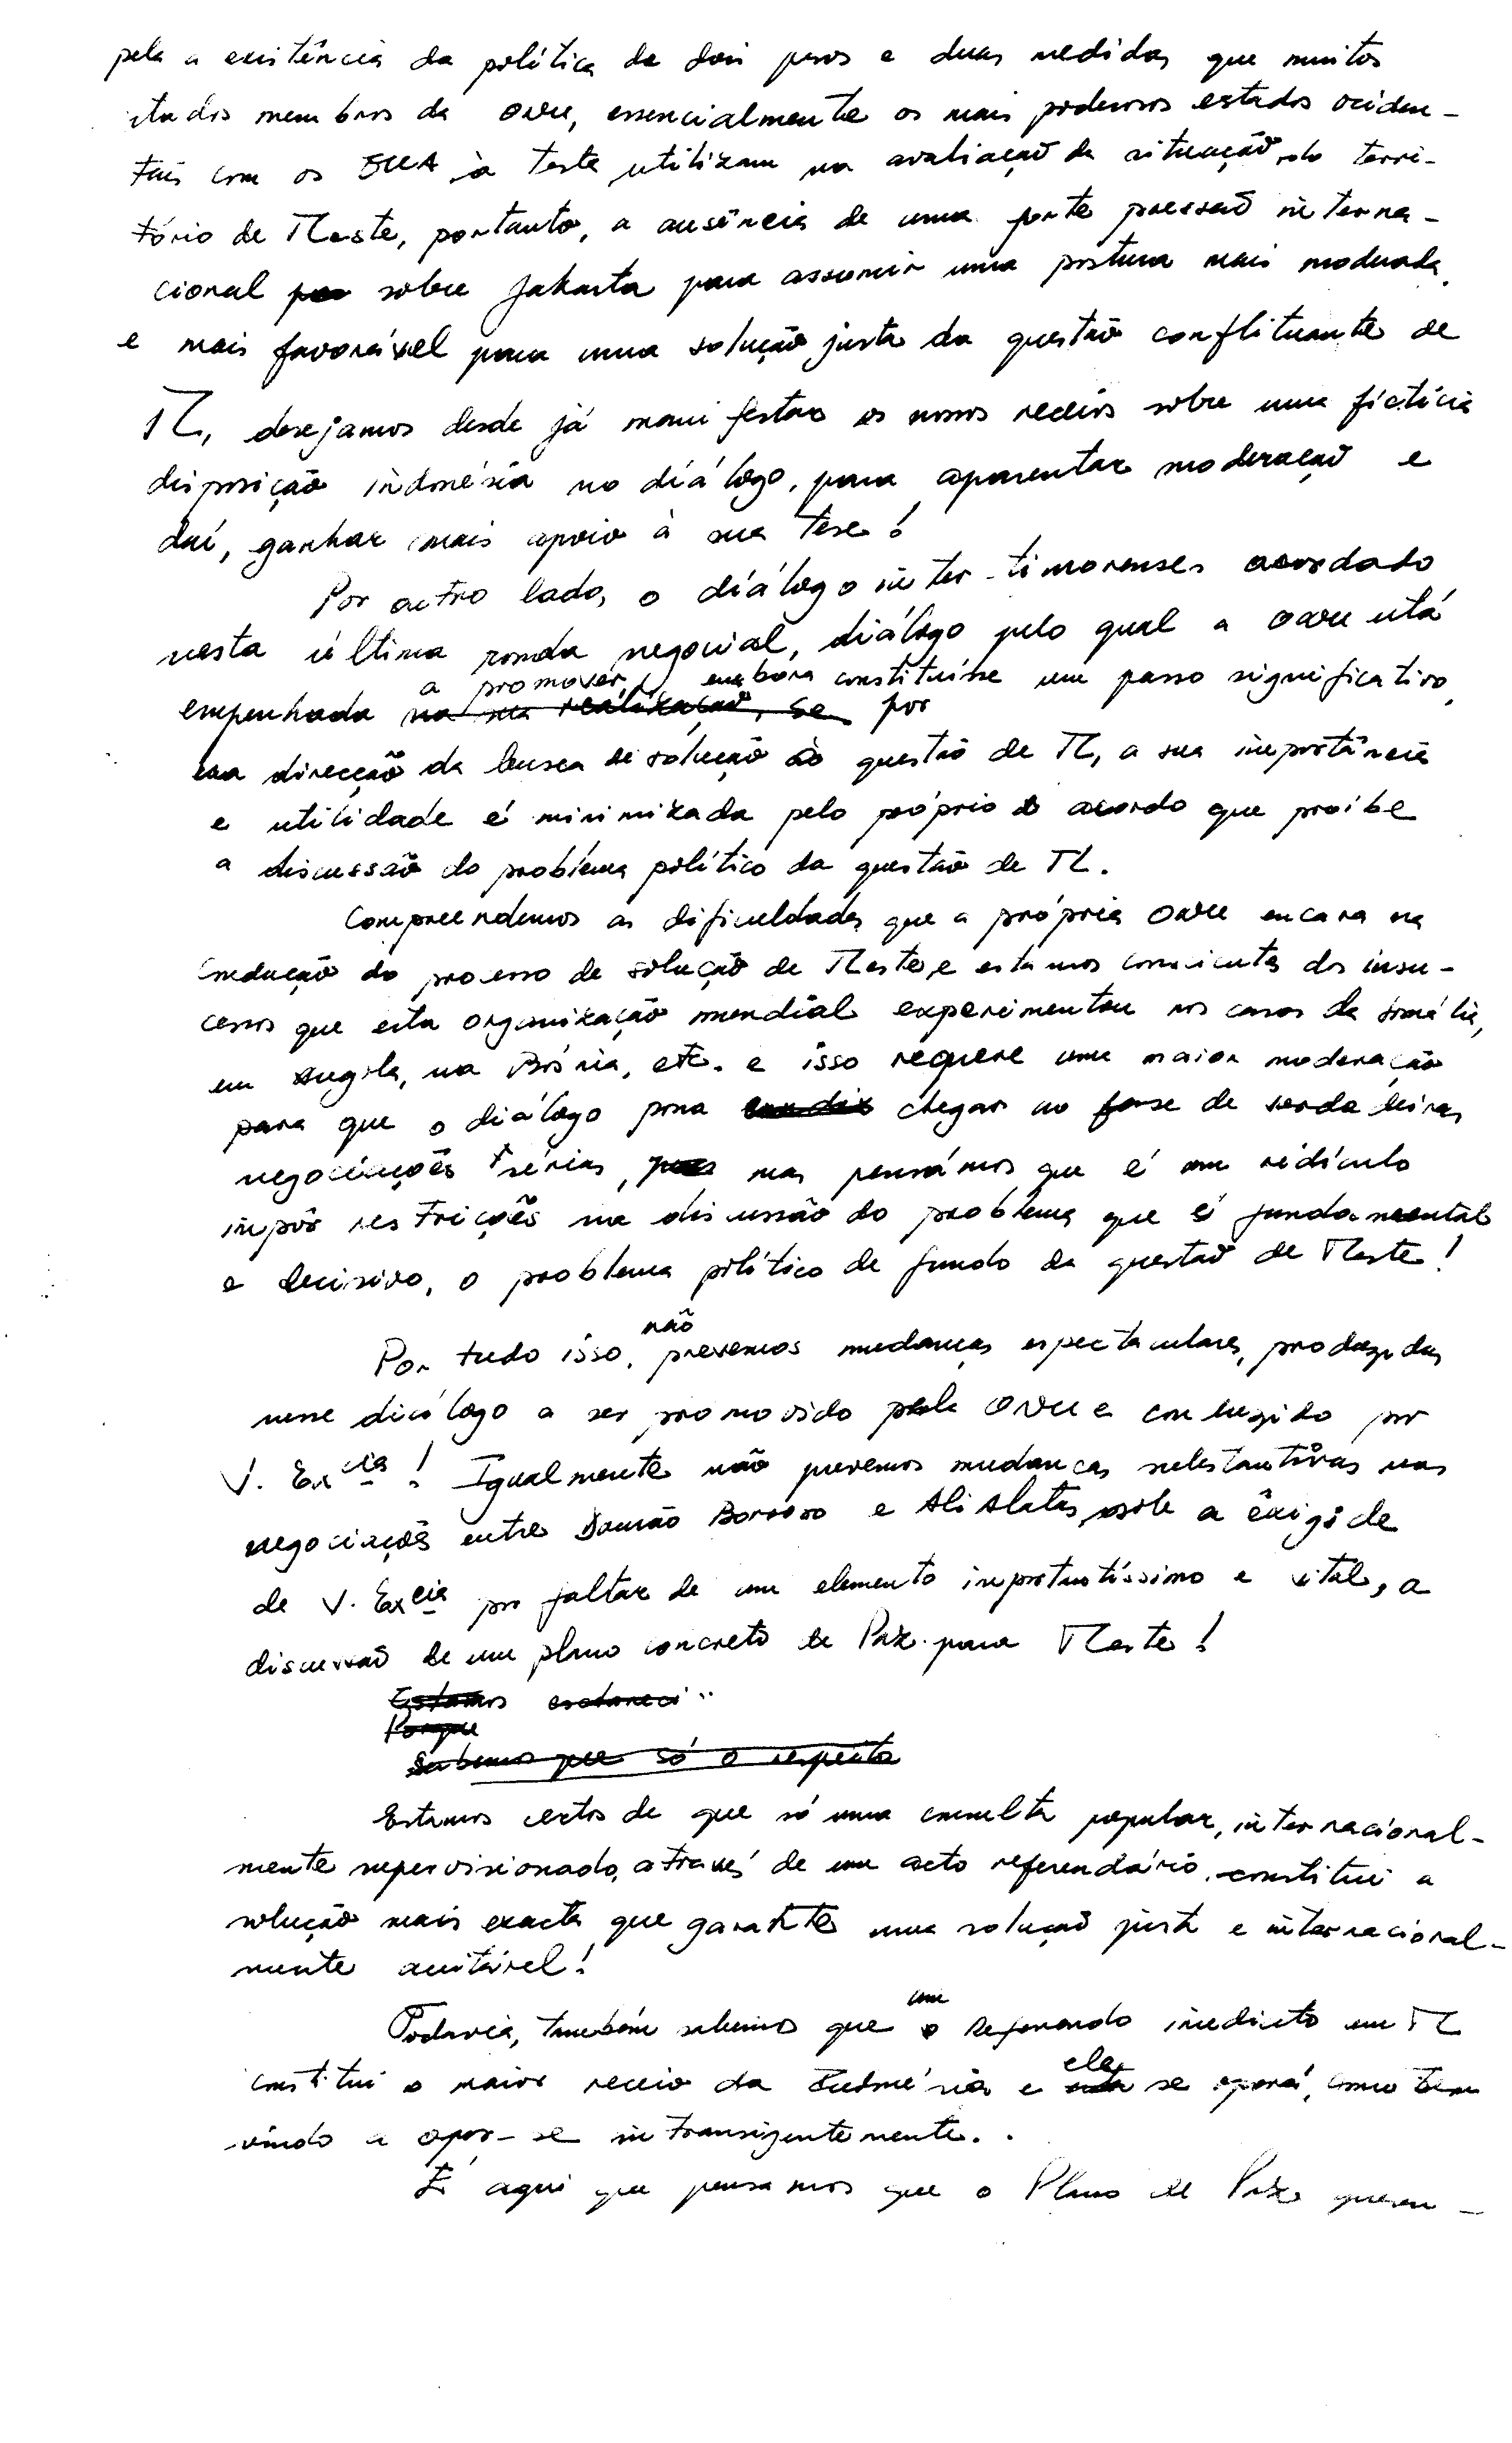 pela a existência da política de dois pesos e duas medidas que muitos
estados membros da ONU, essencialmente os mais poderosos estados ociden-
tais com os EUA à testa utilizam na avaliação da situação do terri-
tório de TLeste, portanto, a ausência de uma forte pressão interna-
cional sobre Jakarta para assumir uma postura mais moderada
e mais favorável para uma solução justa da questão conflituante de
TL, desejamos desde já manifestar os nossos receios sobre uma fictícia
disposição indonésia no diálogo, para aparentar moderação e
daí, ganhar mais apoio à sua tese!
Por outro lado, o diálogo inter-timorenses acordado
nesta última ronda negocial, diálogo pelo qual a ONU está
a promover, embora constituísse um passo significativo,
empenhada na sua realização, se por
na direcção da busca de solução à questão de TL, a sua importância
e utilidade é minimizada pelo próprio acordo que proíbe
a discussão do problema político da questão de TL.
Compreendemos as dificuldades que a própria ONU encara na
condução do processo de solução de TLeste e estamos conscientes dos insu-
cessos que esta organização mundial experimentou nos casos da Somália,
em Angola, na Bósnia, etc. e isso requere uma maior moderação
para que o diálogo possa chegar ao fase de verdadeiras
negociações sérias, mas pensámos que é um ridículo
impôr restrições na discussão do problema que é fundamental
e decisivo, o problema político de fundo da questão de TLeste!
não
Por tudo isso, prevemos mudanças espectaculares, produzidas
nesse diálogo a ser promovido pela ONU e conduzido por
V. Excia! Igualmente não prevemos mudanças substantivas nas
negociações entre Durão Barroso e Ali Alatas, sob a êxigide
de V. Excia por faltar de um elemento importantíssimo e vital, a
discussão de um plano concreto de Paz para TLeste!
Estamos esclareci
Porque
Sabemos que só o respeito
Estamos certos de que só uma consulta popular, internacional-
mente supervisionado, através de um acto referendário, constitui a
solução mais exacta que garante uma solução justa e internacional-
mente aceitável!
um
Todavia, também sabemos que o Referendo imediato em TL
ela
constitui o maior receio da Indonésia e esta se oporá, como tem
vindo a opor-se intransigentemente.
É aqui que pensamos que o Plano de Paz